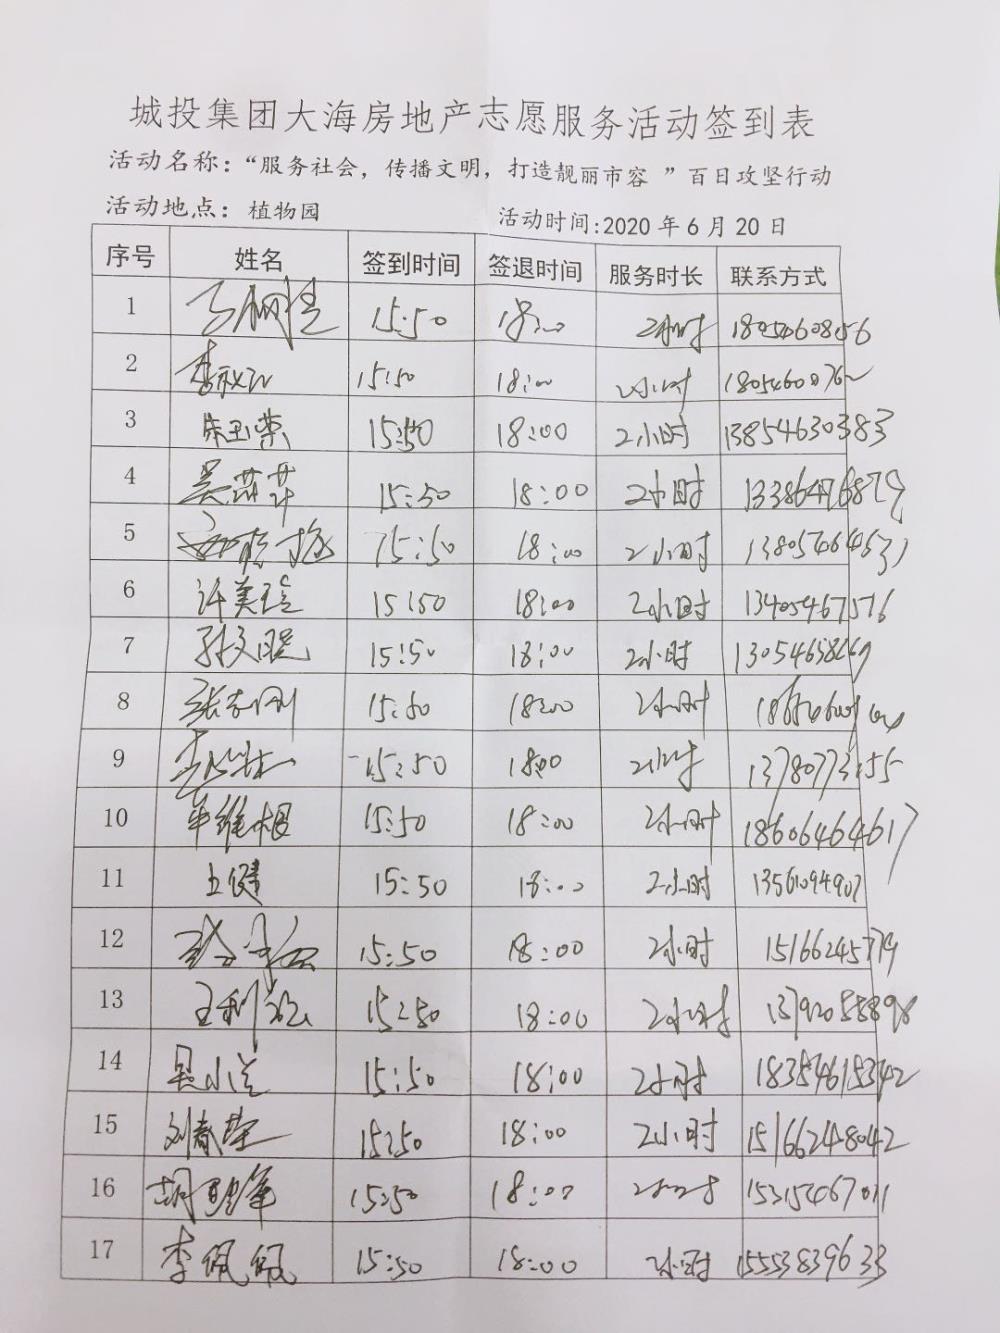 城投集团大海房地产志愿服务活动签到表
活动名称：“服务社会，传播文明，打造靓丽市容 ”百日攻坚行动
活动地点：植物园 活动时间:2020 年 6 月 20 日
序号 姓名 签到时间 签退时间 服务时长 联系方式
1 15:50 18:00 2小时
2 15:50 18:00 2小时
3 朱玉荣 15:50 18:00 2小时 13854630383
4 吴萍萍 15:50 18:00 2小时 13386476879
5 15:50 18:00 2小时
6 许美瑄 15:50 18:00 2小时 13405467576
7 孙文晓 15:50 18:00 2小时
8 张志刚 15:50 18:00 2小时
9 15:50 18:00 2小时 13780773155
10 单维根 15:50 18:00 2小时 18606464617
11 王健 15:50 18:00 2小时 13561094907
12 15:50 18:00 2小时 15166245779
13 15:50 18:00 2小时
14 吴小兰 15:50 18:00 2小时 18354615342
15 刘春莹 15:50 18:00 2小时 15166248042
16 15:50 18:00 2小时
17 李佩佩 15:50 18:00 2小时 15553839633